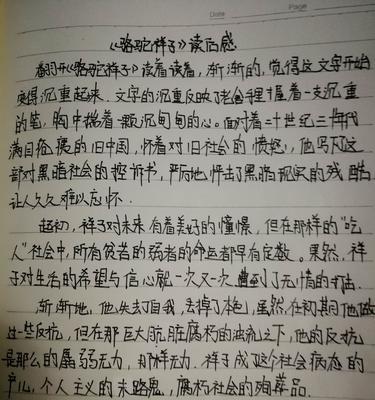 Date
Page
《骆驼祥子》读后感
翻开《骆驼祥子》读着读着，渐渐的，觉得这文字开始
变得沉重起来。文字的沉重反映了老舍手里握着一支沉重
的笔，胸中揣着一颗沉甸甸的心。面对着二十世纪三十年代
满目疮痍的旧中国，怀着对旧社会的愤怒，他写下这
部对黑暗社会的控诉书，严厉地抨击了黑暗现实的残酷
让人久久难以忘怀。
起初，祥子对未来有着美好的憧憬，但在那样的“吃
人”社会中，所有贫苦的弱者的命运都早有定数。果然，祥
子对生活的希望与信心就一次又一次遭到了无情的打击。
渐渐地，他失去了自我，丢掉了本色，虽然在初期他做
过一些反抗，但在那巨大肮脏腐朽的浊流之下，他的反抗
是那么的孱弱无力，那样无力。祥子成了这个社会病态的
产儿，个人主义的末路鬼，腐朽社会的殉葬品。